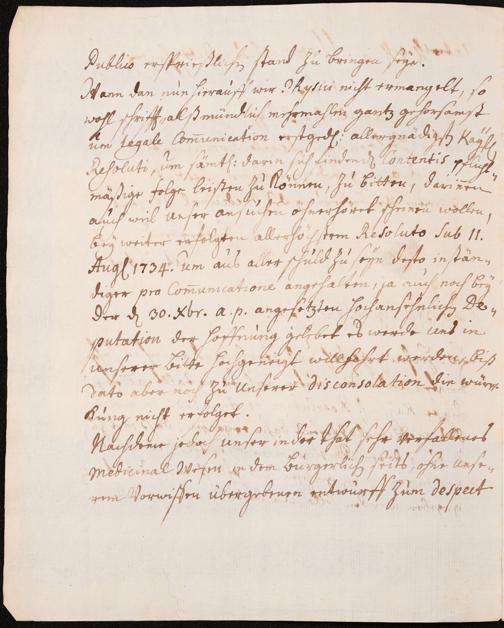 Publico ersprießlichen stand zu bringen seye.
Wann dan nun hierauff wir Physici nicht ermangelt, so
wohl schrifft- alß mündlich mehrmahlen gantz gehorsamst
um legale Communication erstged. allergnädigst Kayl.
Resoluti, um sämtl. darin sich findenden Contentis pflicht-
mäßige folge leisten zu können, zu bitten, darinnen
auch weil unser ansuchen ohnerhöret scheinen wollen,
bey weiter erfolgten allerhöchstem Resoluto sub 11.
Aug. 1734. um aus aller schuld zu seyn desto instän-
diger pro Communicatione angehalten, ja auch noch bey
der d. 30. Xbr. a. p. angesetzten hochansehnlichen De-
putation der hoffnung gelebet es werde uns in
unserer bitte hochgeneigt willfahrt werden, biß
dato aber noch zu unserer disconsolation die würk-
kung nicht erfolget.
Nachdeme jedoch unser in der that sehr verfallenes
Medicinal Wesen in dem bürgerlich. seits, ohne unse-
rem Vorwissen übergebenen entwurff zum despect